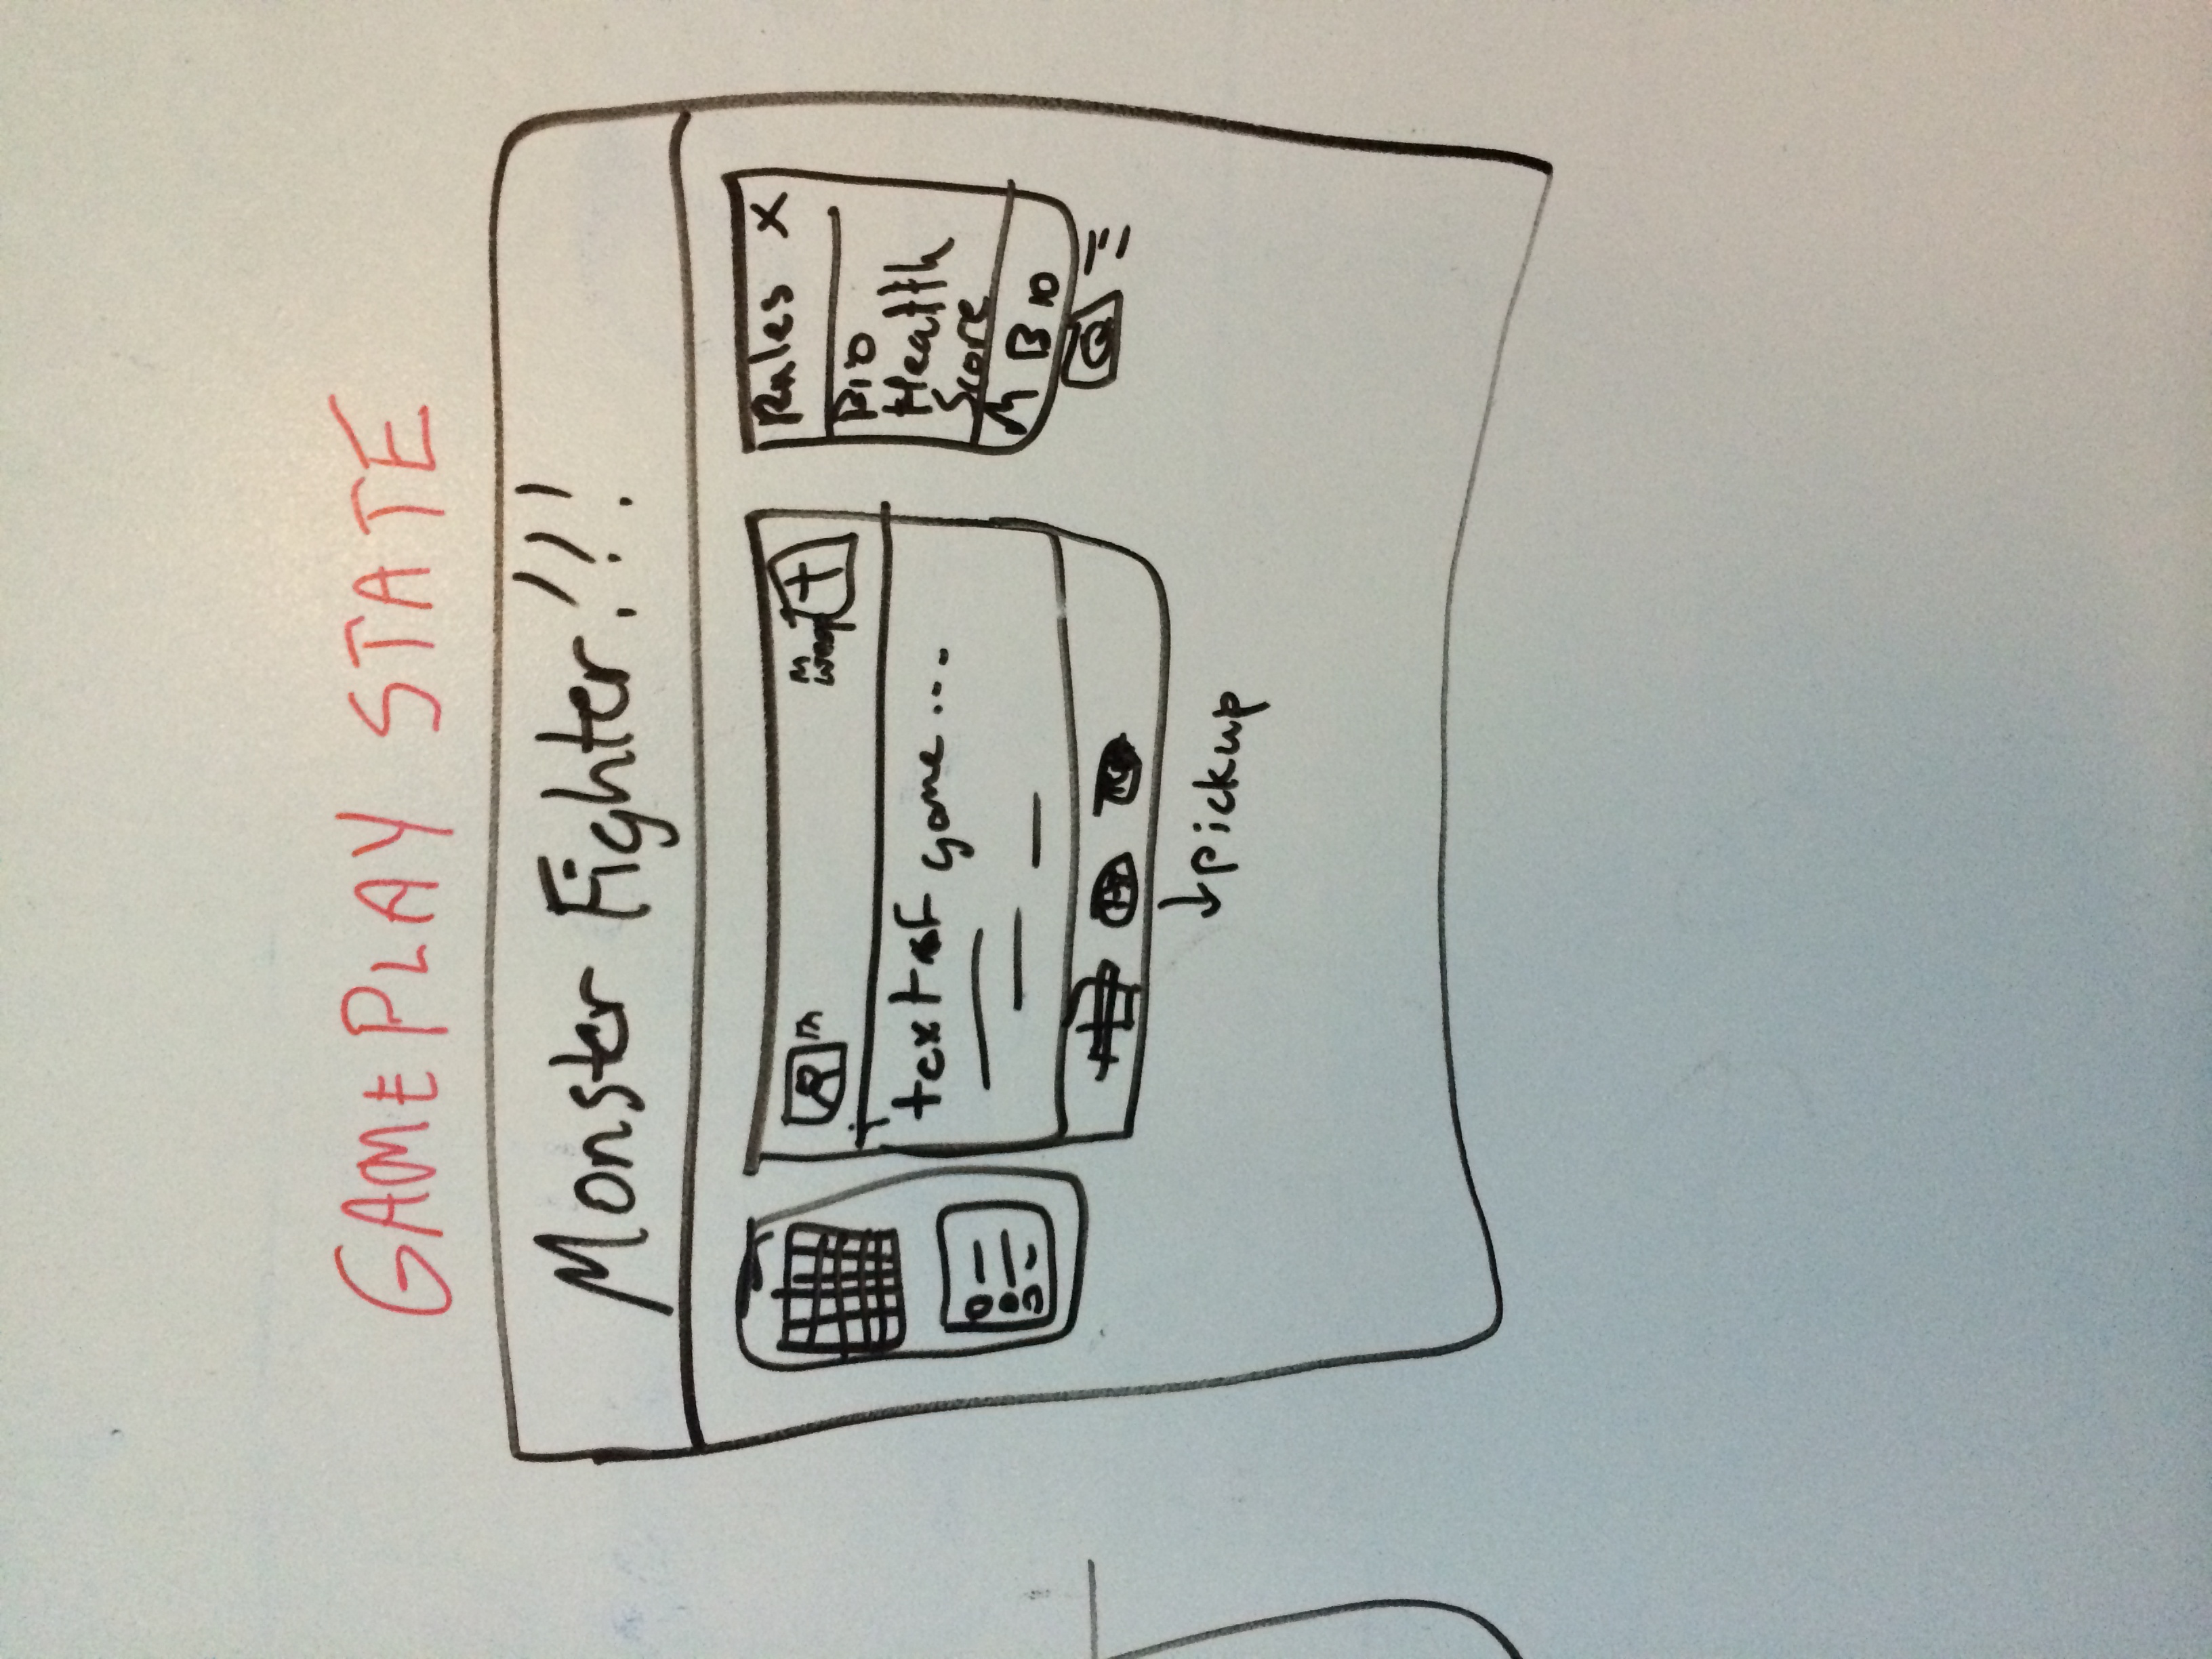 GAMEPLAY STATE
Monster Fighter!!!
m
M
weap
text of game...
pickup
Rules X
Bio
Health
Score
M Bio